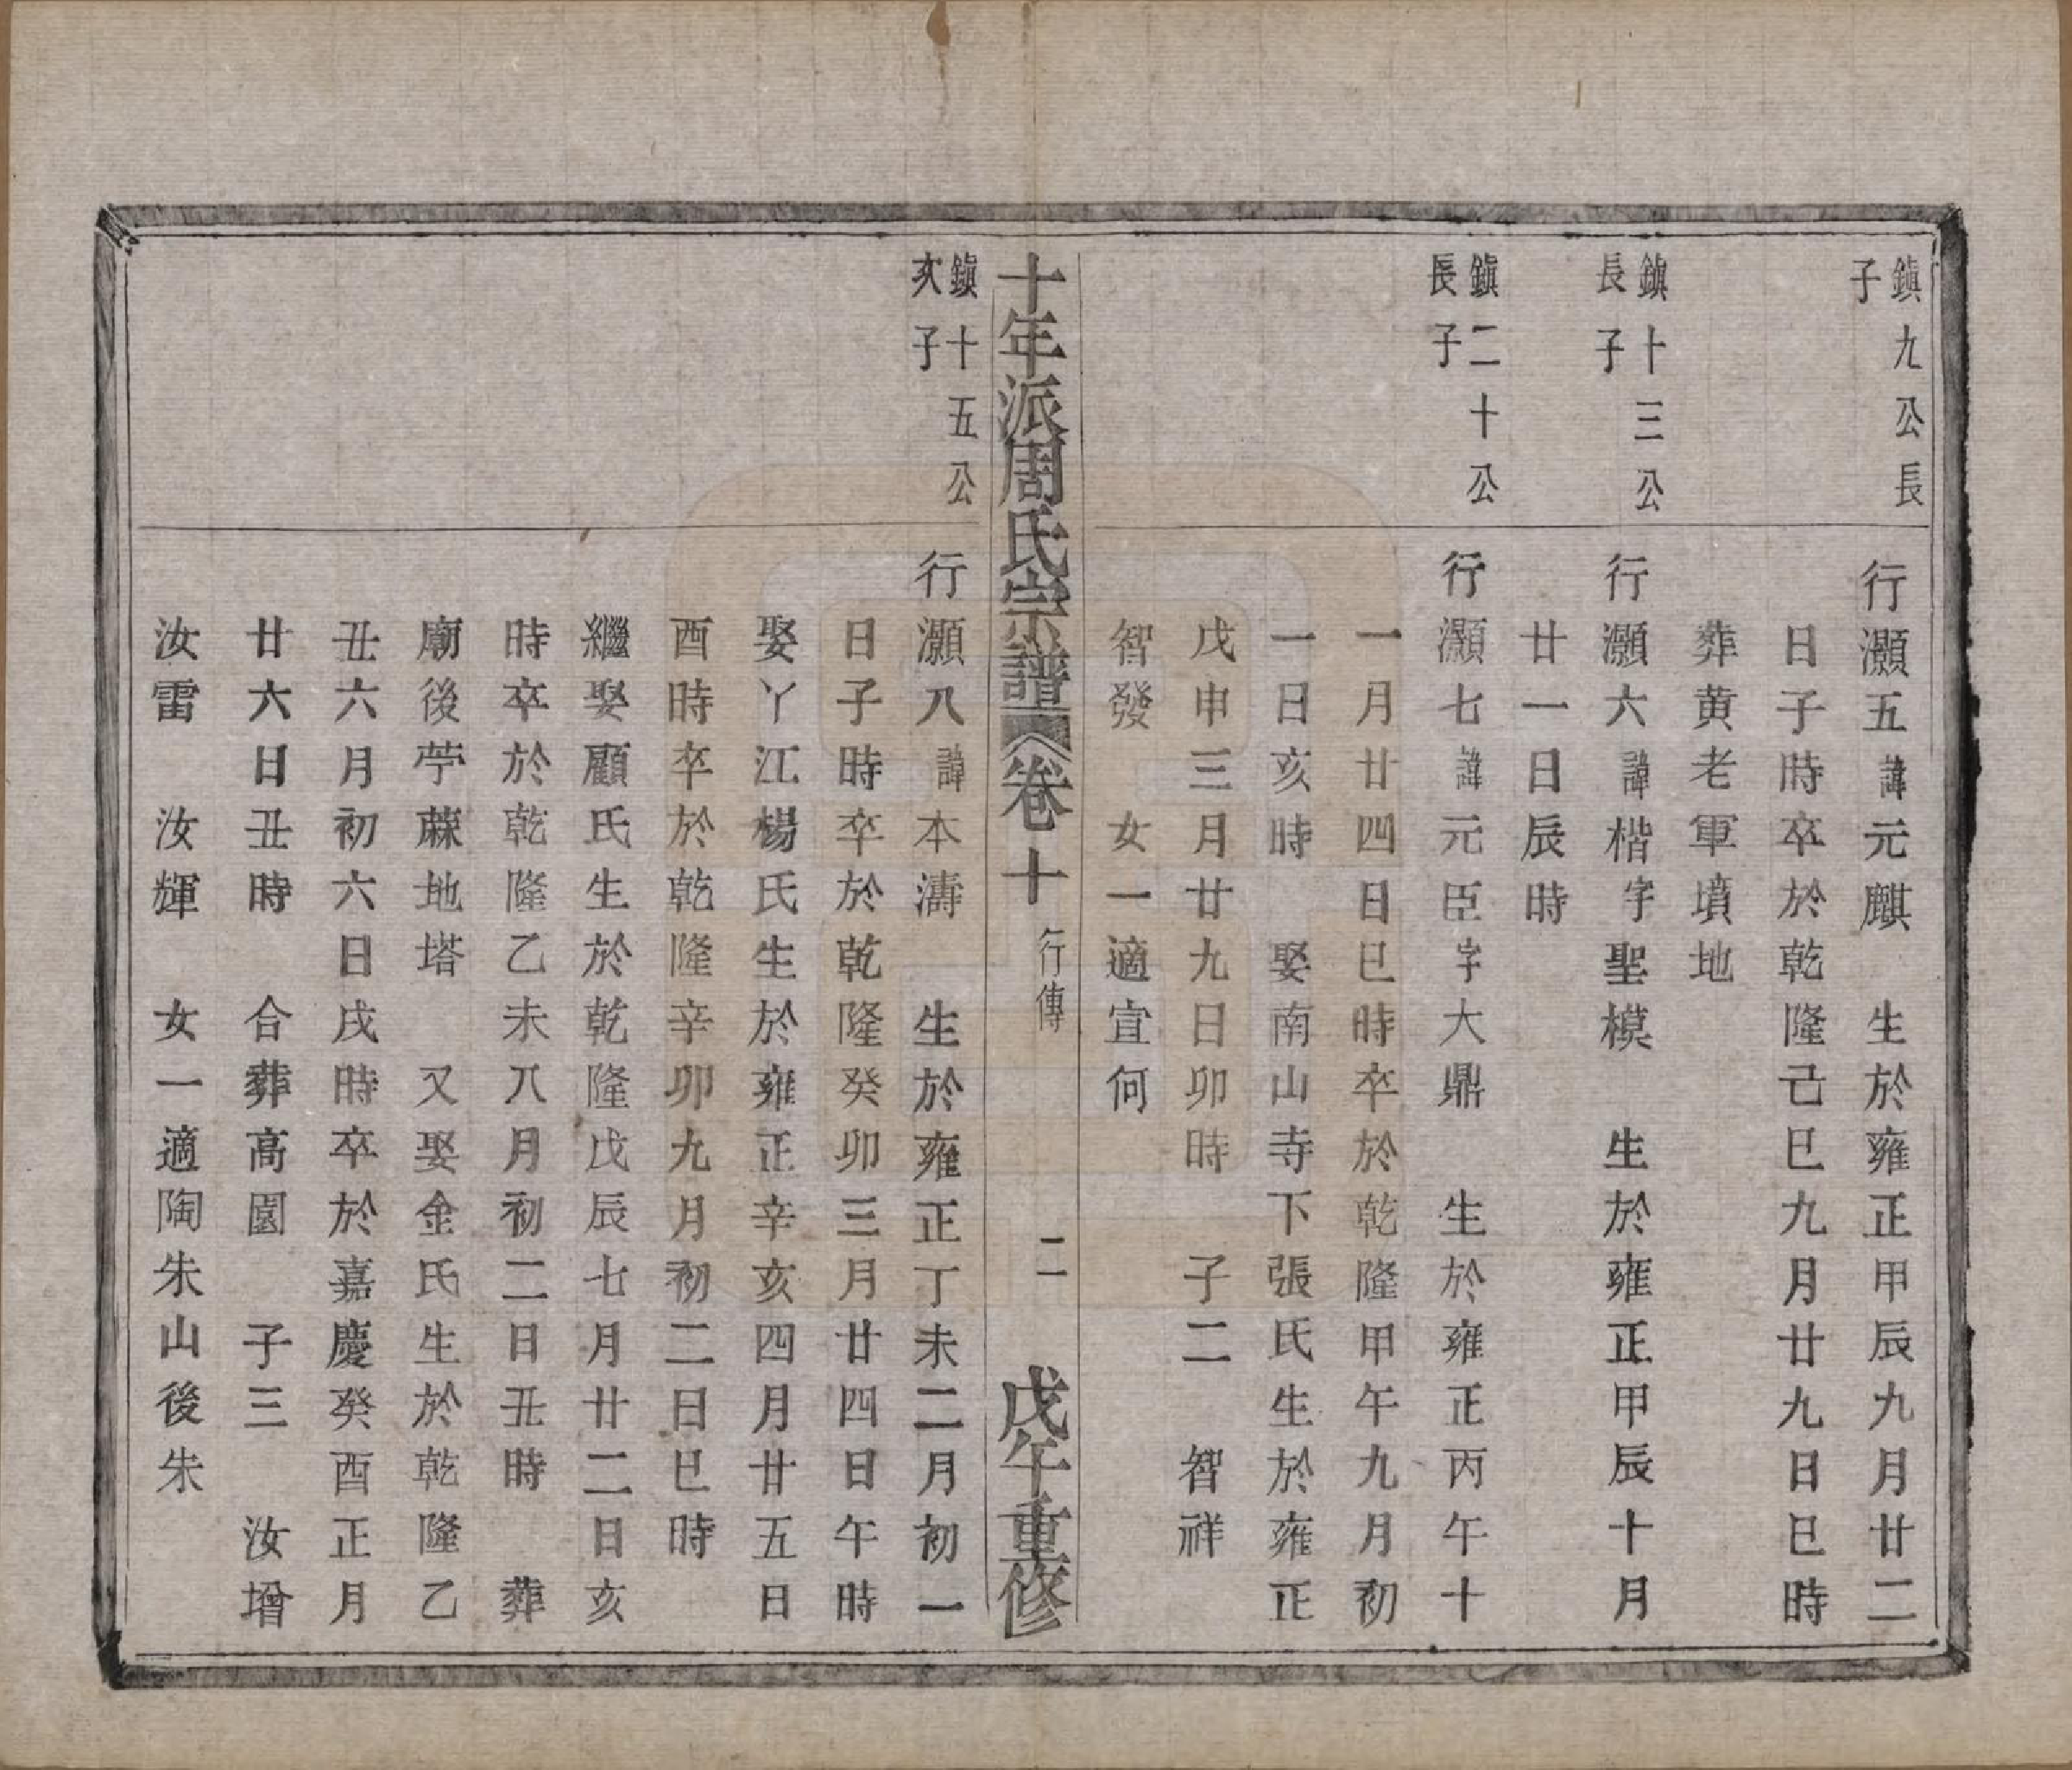 鎮九公長
子
行灝五諱元麒　生於雍正甲辰九月廿二
日子時卒於乾隆己巳九月廿九日巳時
葬黄老軍墳地
鎮十三公
長子
行灝六諱楷字聖模　生於雍正甲辰十月
廿一日辰時
鎮二十公
長子
行灝七諱元臣字大鼎　生於雍正丙午十
一月廿四日巳時卒於乾隆甲午九月初
一日亥時　娶南山寺下張氏生於雍正
戊申三月廿九日卯時　子二　智祥
智發　女一適宣何
十年派周氏宗譜　卷十　行傳　二　戊午重修
鎮十五公
次子
行灝八諱本濤　生於雍正丁未二月初一
日子時卒於乾隆癸卯三月廿四日午時
娶丫江楊氏生於雍正辛亥四月廿五日
酉時卒於乾隆辛卯九月初二日巳時
繼娶顧氏生於乾隆戊辰七月廿二日亥
時卒於乾隆乙未八月初二日丑時　葬
廟後苧蔴地塔　又娶金氏生於乾隆乙
丑六月初六日戌時卒於嘉慶癸酉正月
廿六日丑時　合葬高園　子三　汝增
汝雷　汝輝　女一適陶朱山後朱